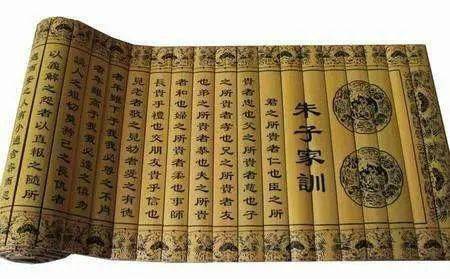 朱子家訓
君之所貴者仁也臣之所
貴者忠也父之所貴者慈也子
之所貴者孝也兄之所貴者友
也弟之所貴者恭也夫之所貴
者和也婦之所貴者柔也事師
長貴乎禮也交朋友貴乎信也
見老者敬之見幼者愛之有德
者年雖下於我我必尊之不肖
者年高於我我必遠之慎勿
談人之短切莫矜己之長仇者
以義解之怨者以直報之隨所